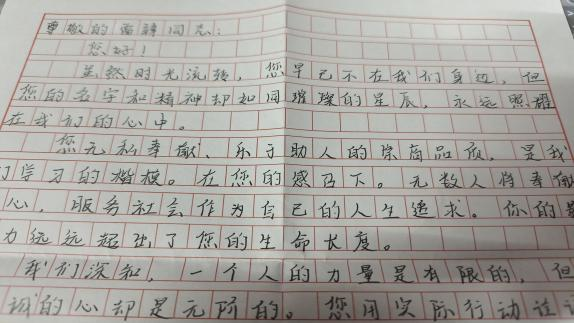 尊敬的雷锋同志：
您好！
虽然时光流转，您早已不在我们身边，但
您的名字和精神却如同璀璨的星辰，永远照耀
在我们的心中。
您无私奉献、乐于助人的崇高品质，是我
们学习的楷模。在您的感召下。无数人将奉献
心，服务社会作为自己的人生追求。你的影
力远远超出了您的生命长度。
我们深知，一个人的力量是有限的，但
诚的心却是无阶的。您用实际行动证